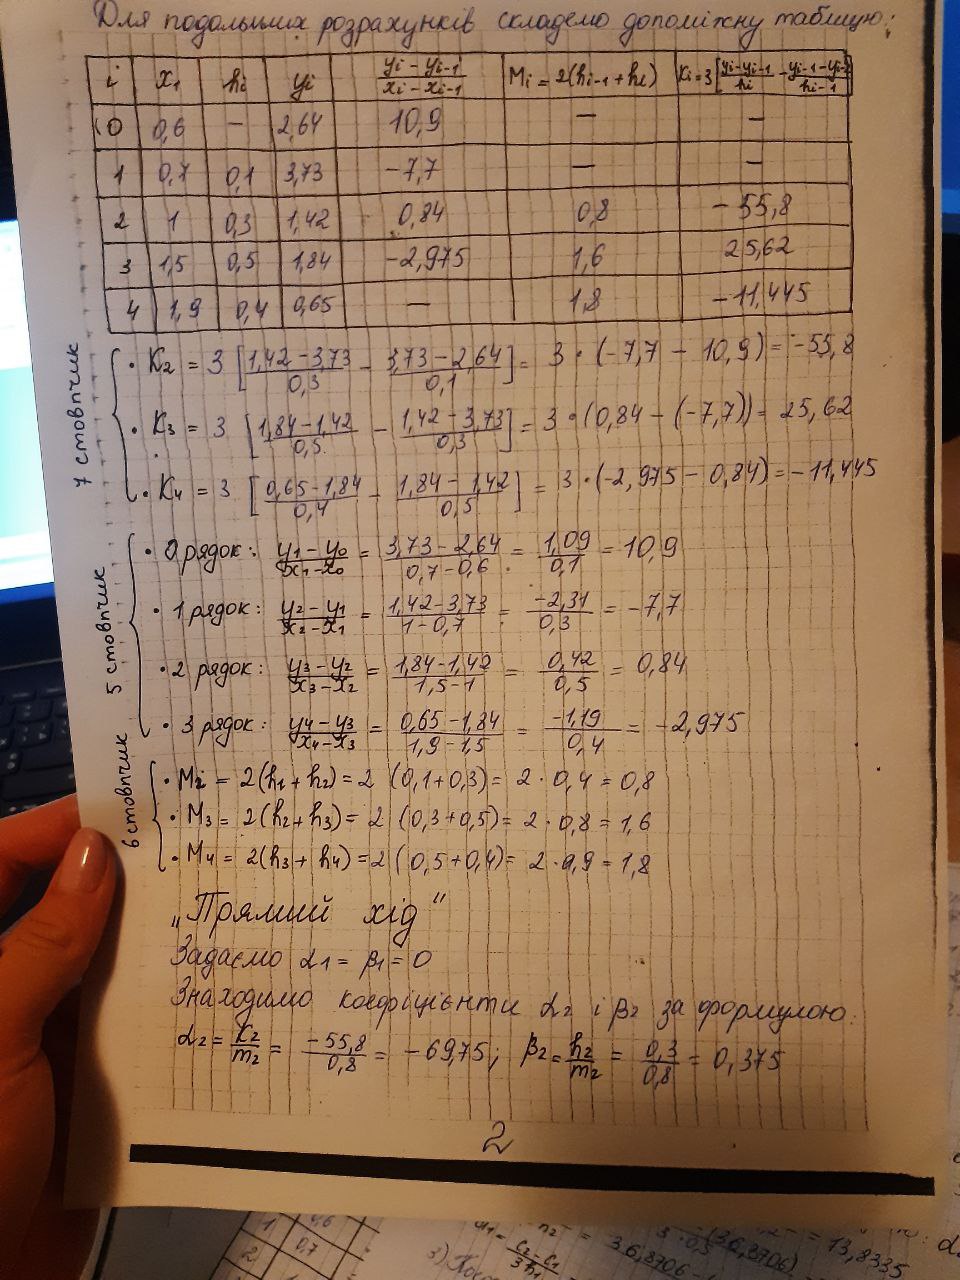 Для подальших розрахунків складемо допоміжну таблицю:
i x1 hi yi (yi − yi-1)/(xi − xi-1) Mi = 2(hi-1 + hi) Ki = 3[(yi − yi-1)/hi − (yi-1 − yi-2)/hi-1]
0 0,6 − 2,64 10,9 − −
1 0,7 0,1 3,73 −7,7 − −
2 1 0,3 1,42 0,84 0,8 −55,8
3 1,5 0,5 1,84 −2,975 1,6 25,62
4 1,9 0,4 0,65 − 1,8 −11,445
7 стовпчик
• K2 = 3 [(1,42 − 3,73)/0,3 − (3,73 − 2,64)/0,1] = 3 · (−7,7 − 10,9) = −55,8
• K3 = 3 [(1,84 − 1,42)/0,5 − (1,42 − 3,73)/0,3] = 3 · (0,84 − (−7,7)) = 25,62
• K4 = 3 [(0,65 − 1,84)/0,4 − (1,84 − 1,42)/0,5] = 3 · (−2,975 − 0,84) = −11,445
5 стовпчик
• 0 рядок: (y1 − y0)/(x1 − x0) = (3,73 − 2,64)/(0,7 − 0,6) = 1,09/0,1 = 10,9
• 1 рядок: (y2 − y1)/(x2 − x1) = (1,42 − 3,73)/(1 − 0,7) = −2,31/0,3 = −7,7
• 2 рядок: (y3 − y2)/(x3 − x2) = (1,84 − 1,42)/(1,5 − 1) = 0,42/0,5 = 0,84
• 3 рядок: (y4 − y3)/(x4 − x3) = (0,65 − 1,84)/(1,9 − 1,5) = −1,19/0,4 = −2,975
6 стовпчик
• M2 = 2(h1 + h2) = 2 (0,1 + 0,3) = 2 · 0,4 = 0,8
• M3 = 2(h2 + h3) = 2 (0,3 + 0,5) = 2 · 0,8 = 1,6
• M4 = 2(h3 + h4) = 2 (0,5 + 0,4) = 2 · 0,9 = 1,8
„Прямий хід"
Задаємо α1 = β1 = 0
Знаходимо коефіцієнти α2 і β2 за формулою:
α2 = K2/m2 = −55,8/0,8 = −69,75; β2 = h2/m2 = 0,3/0,8 = 0,375
2